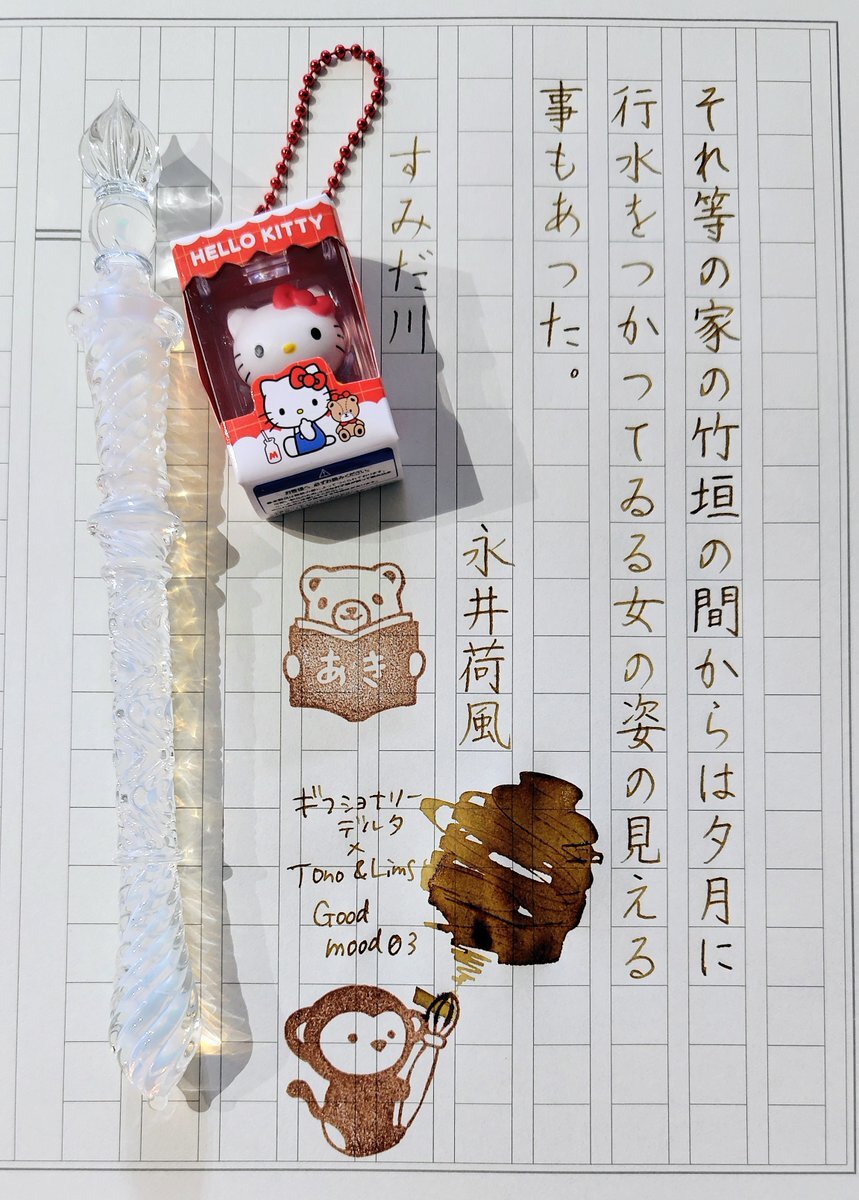 それ等の家の竹垣の間からは夕月に
行水をつかつてゐる女の姿の見える
事もあつた。
すみだ川
永井荷風
HELLO KITTY
M
お客様へ 必ずお読みください。
あき
ギフショナリー
デルタ
×
Tono & Lims
Good
mood 03